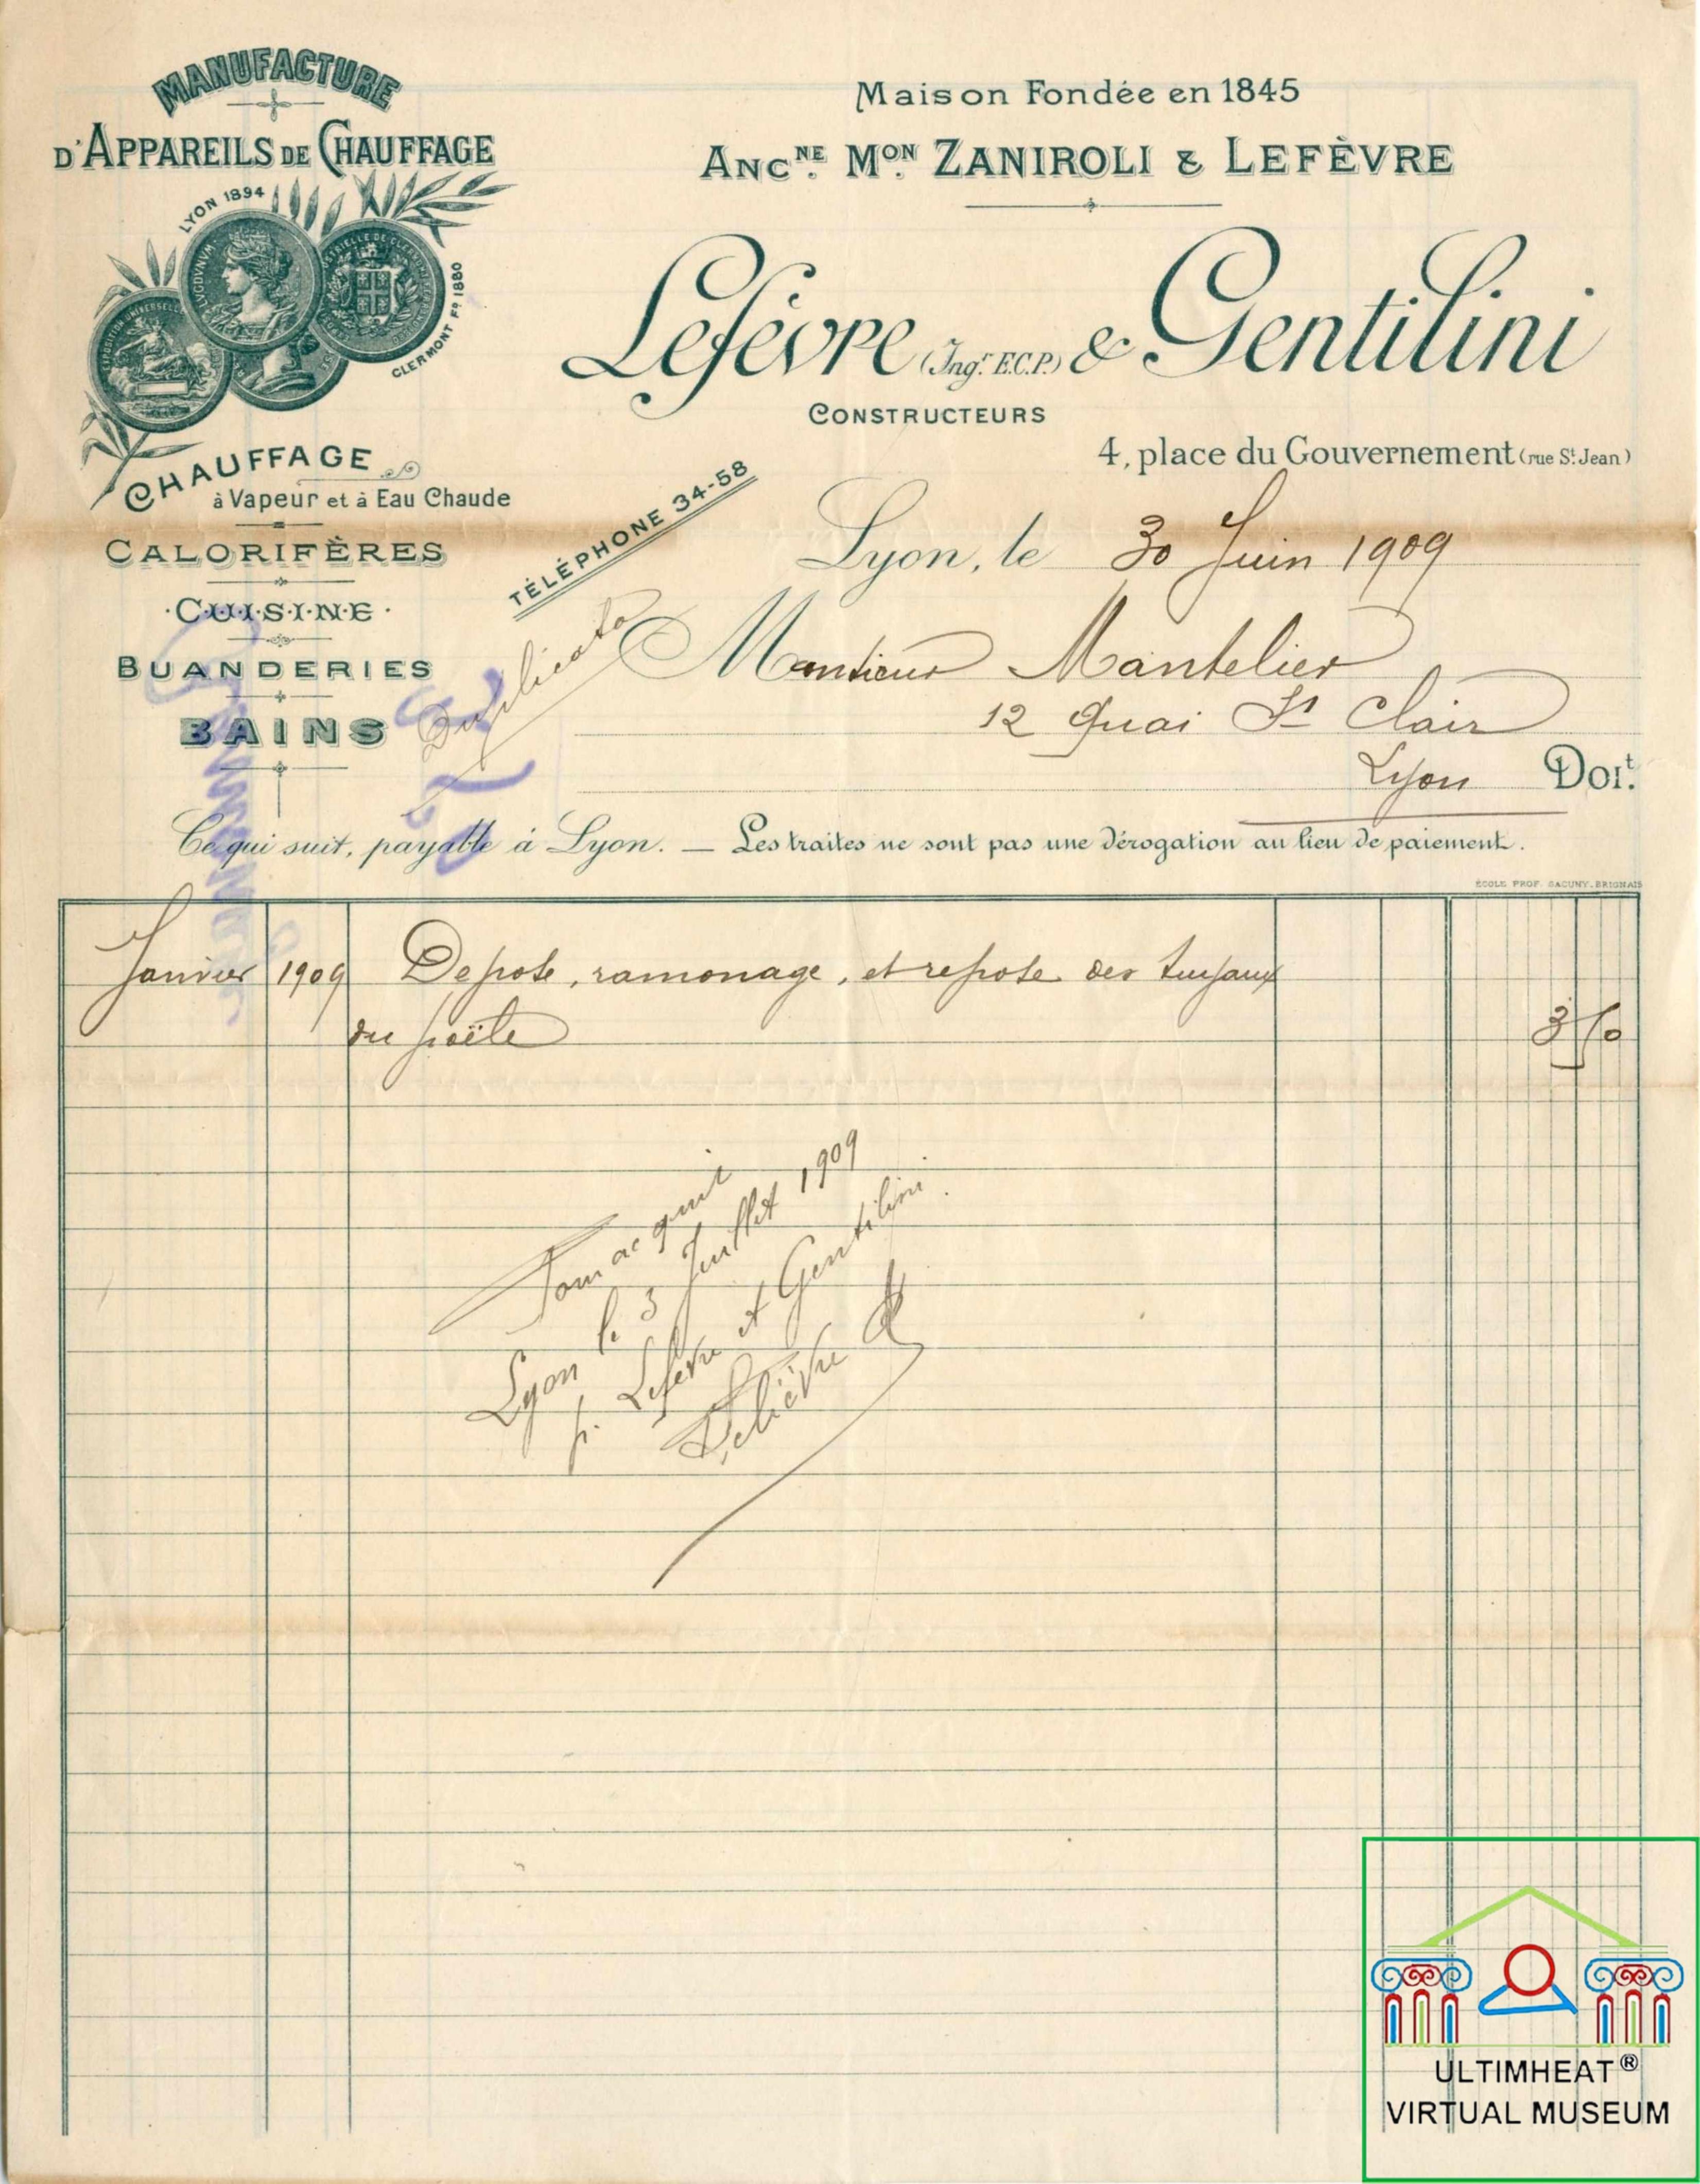 MANUFACTURE
D'APPAREILS DE CHAUFFAGE
LYON 1894
LVGDVNVM
EXPOSITION UNIVERSELLE
CLERMONT Fd 1880
CHAUFFAGE
à Vapeur et à Eau Chaude
CALORIFÈRES
CUISINE
BUANDERIES
BAINS
TÉLÉPHONE 34-58
Maison Fondée en 1845
ANCNE MON ZANIROLI & LEFÈVRE
Lefèvre (Ingr E.C.P.) & Gentilini
CONSTRUCTEURS
4, place du Gouvernement (rue St Jean)
Lyon, le 30 Juin 1909
Duplicata
Monsieur Mantelier
12 Quai St Clair
Lyon DOIt.
Ce qui suit, payable à Lyon. — Les traites ne sont pas une dérogation au lieu de paiement.
ÉCOLE PROF. SACUNY-BRIGNAIS
Janvier 1909 Depose, ramonage, et repose des tuyaux
du poële 3 50
Pour acquit
Lyon le 3 Juillet 1909
p. Lefèvre et Gentilini.
ULTIMHEAT®
VIRTUAL MUSEUM